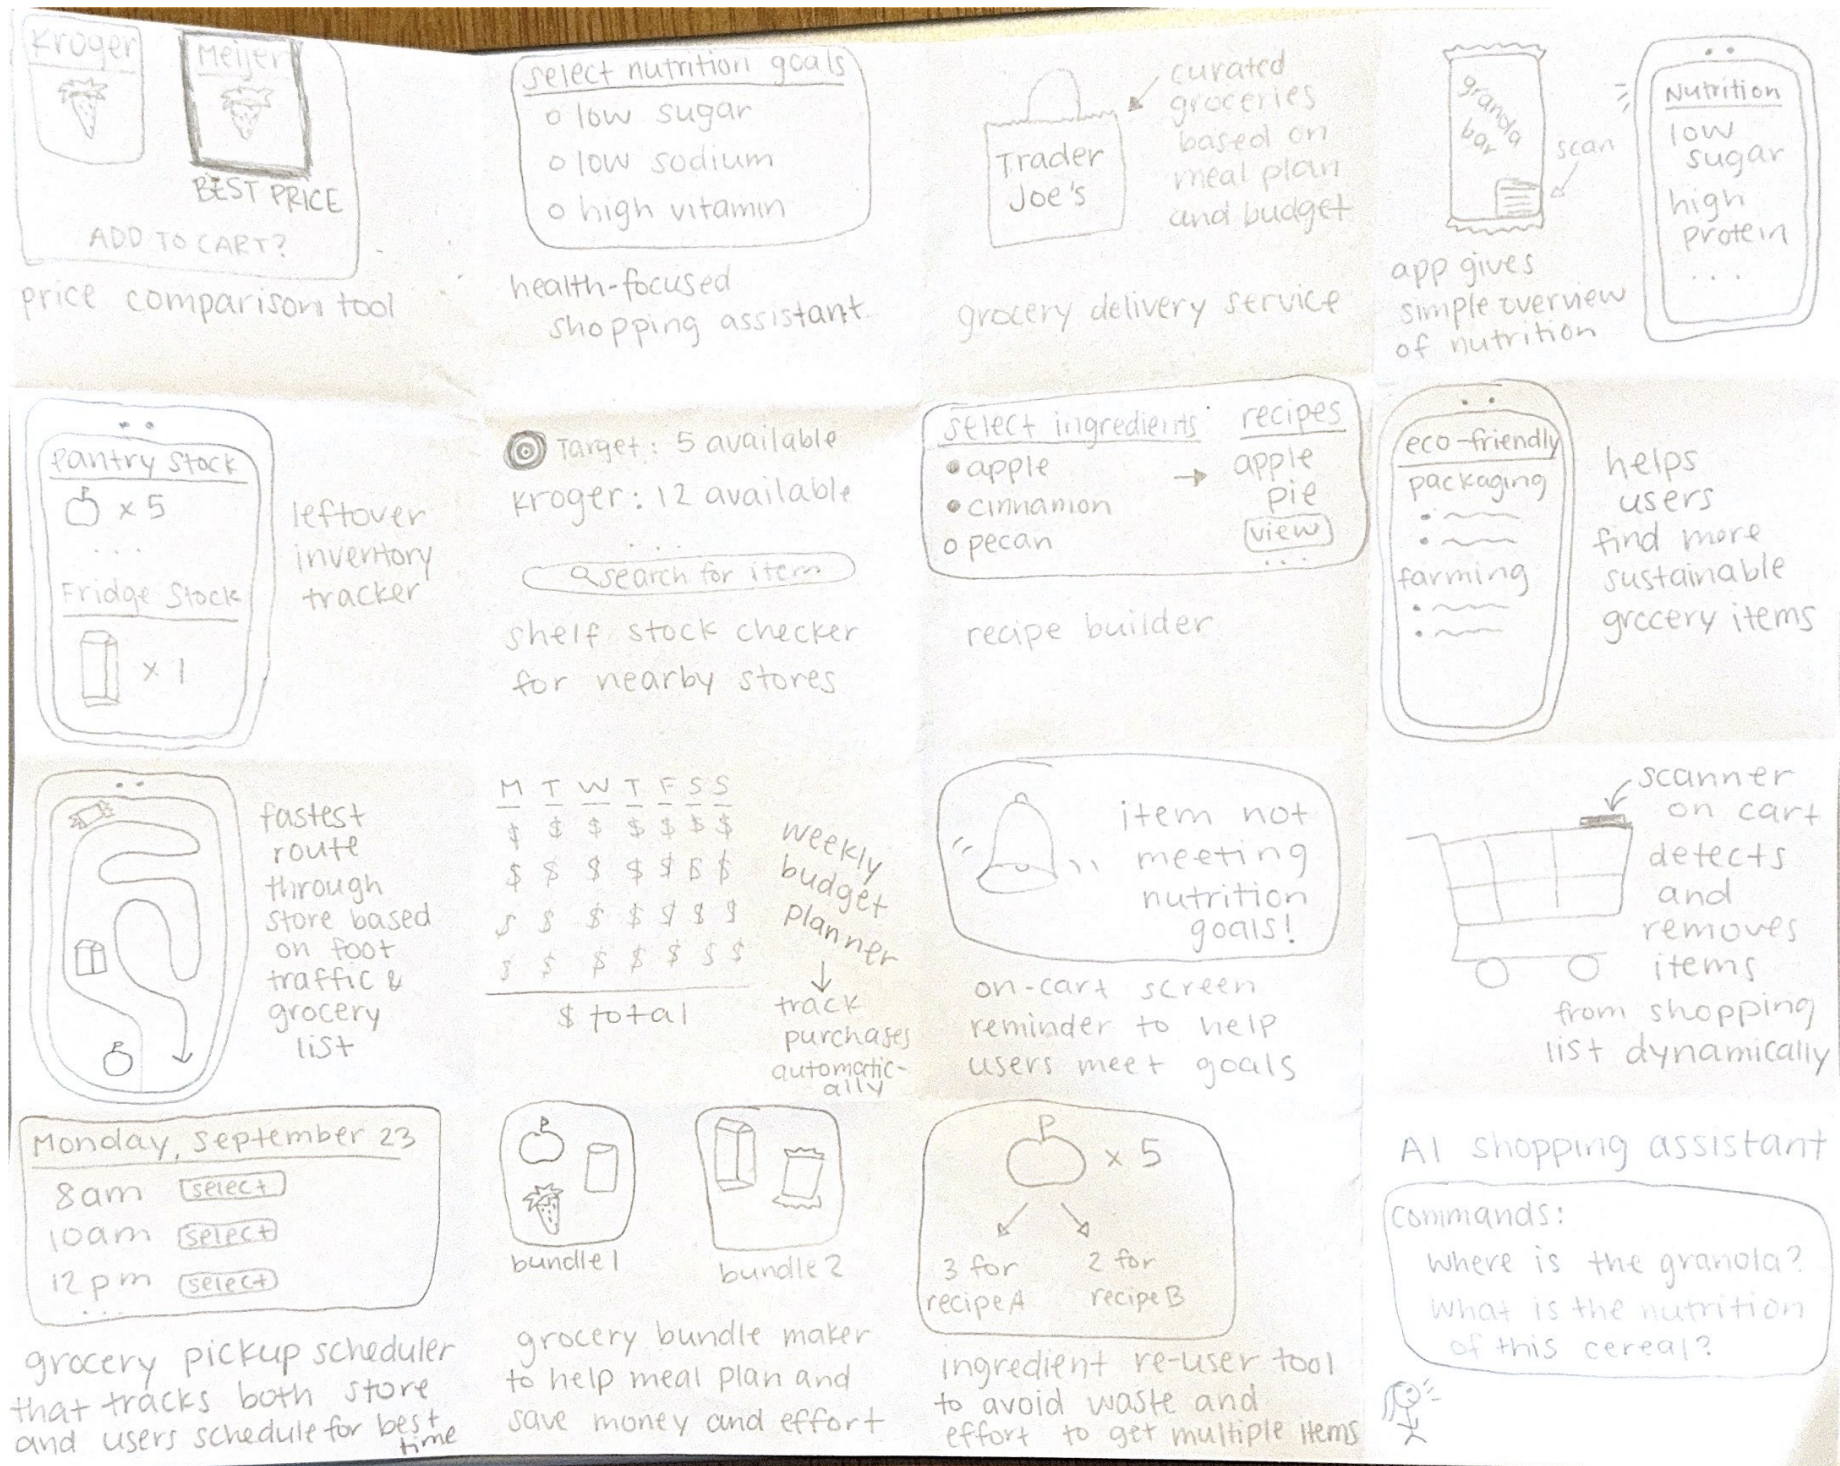 Kroger
Meijer
BEST PRICE
ADD TO CART?
price comparison tool
select nutrition goals
low sugar
low sodium
high vitamin
health-focused
shopping assistant
Trader
Joe's
curated
groceries
based on
meal plan
and budget
grocery delivery service
granola
bar
scan
Nutrition
low
sugar
high
protein
...
app gives
simple overview
of nutrition
Pantry Stock
x 5
...
Fridge Stock
x 1
leftover
inventory
tracker
Target: 5 available
Kroger: 12 available
...
search for item
shelf stock checker
for nearby stores
select ingredients
• apple
• cinnamon
o pecan
→
recipes
apple
pie
view
...
recipe builder
eco-friendly
packaging
farming
helps
users
find more
sustainable
grocery items
fastest
route
through
store based
on foot
traffic &
grocery
list
M T W T F S S
$ $ $ $ $ $ $
$ $ $ $ $ $ $
$ $ $ $ $ $ $
$ $ $ $ $ $ $
$ total
weekly
budget
planner
↓
track
purchases
automatic-
ally
item not
meeting
nutrition
goals!
on-cart screen
reminder to help
users meet goals
scanner
on cart
detects
and
removes
items
from shopping
list dynamically
Monday, September 23
8am select
10am select
12pm select
...
grocery pickup scheduler
that tracks both store
and users schedule for best
time
bundle 1
bundle 2
grocery bundle maker
to help meal plan and
save money and effort
x 5
3 for
recipe A
2 for
recipe B
ingredient re-user tool
to avoid waste and
effort to get multiple items
AI shopping assistant
Commands:
Where is the granola?
What is the nutrition
of this cereal?